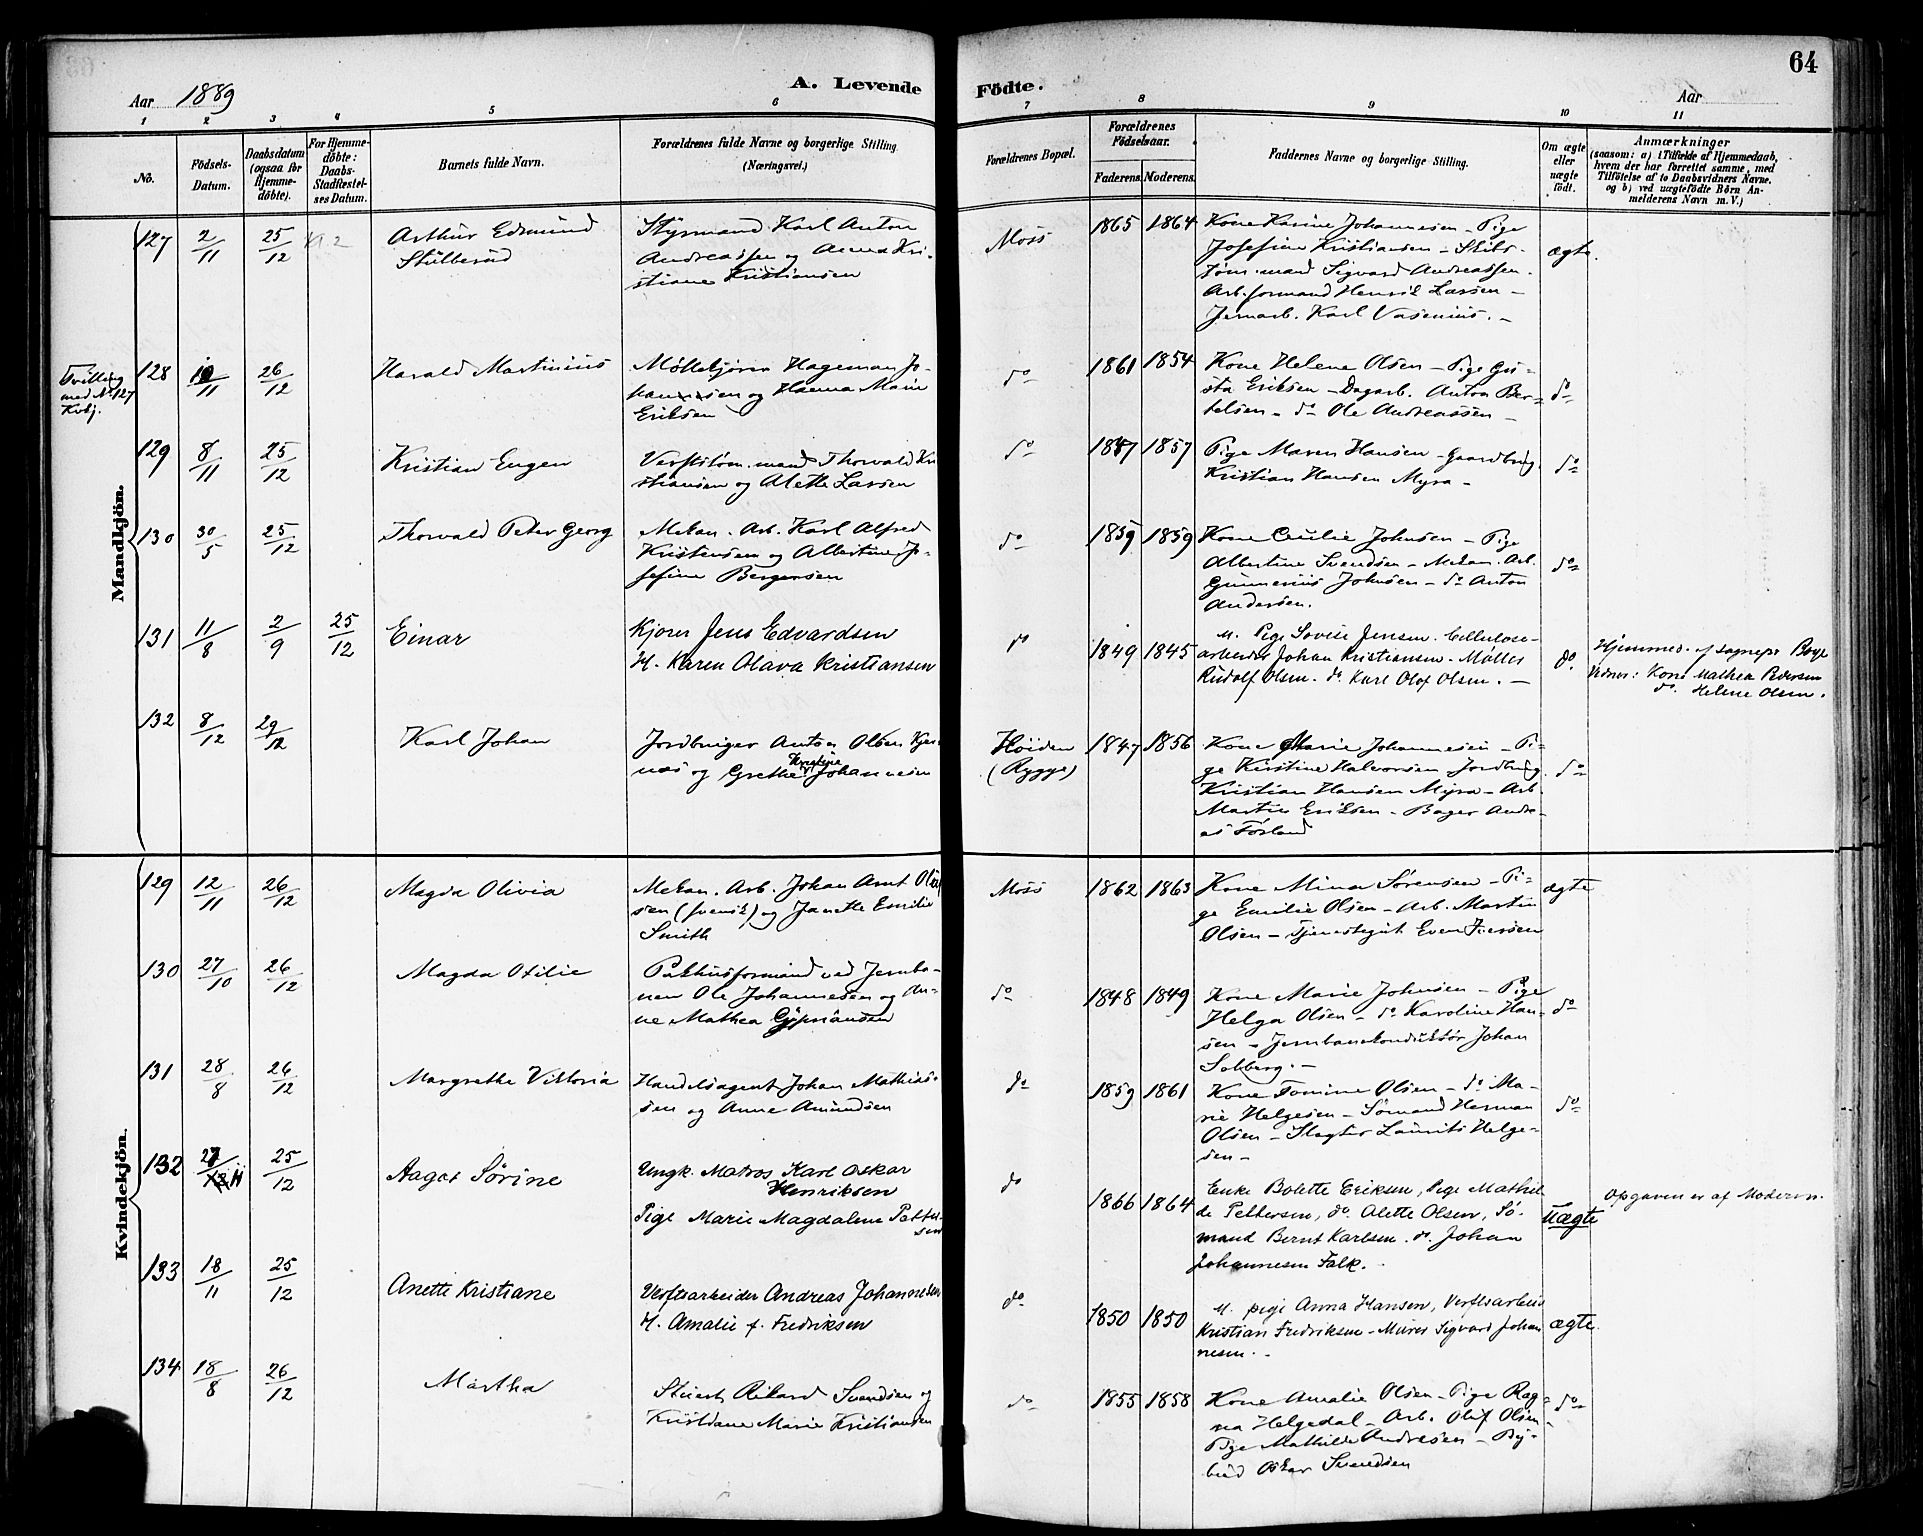 64
Aar 1889
A. Levende
Födte.
Aar
1 2 3 4 5 6 7 8 9 10 11
No.
Födsels-
Datum.
Daabsdatum
(ogsaa for
Hjemme-
döbte).
For Hjemme-
döbte:
Daabs-
Stadfæstel-
ses Datum.
Barnets fulde Navn.
Forældrenes fulde Navne og borgerlige Stilling
(Næringsvei.)
Forældrenes Bopæl.
Forældrenes
Födselsaar.
Faderens. Moderens.
Faddernes Navne og borgerlige Stilling.
Om ægte
eller
uægte
födt.
Anmærkninger
(saasom: a) i Tilfælde af Hjemmedaab,
hvem der har forrettet samme, med
Tilföielse af to Daabsvidners Navne,
og b) ved uægtefödte Börn An-
melderens Navn m. V.)
Mandkjön.
127 2/11 25/12 Kl 2
Arthur Edmund
Stulberud
Styrmand Karl Anton
Andreassen og Anna Kri-
stiane Kristiansen
Moss
1865 1864
Kone Karine Johannesen - Pige
Josefine Kristiansen - Skibs-
tøm.mand Sigvard Andreassen.
Arb.formand Henrik Larsen -
Jernarb. Karl Vasenius. -
ægte.
Tvilling
med No 127
Kvkj.
128 10/11 26/12
Harald Martinius
Møllekjører Hageman Jo-
hannesen og Hanna Marie
Eriksen
do
1861 1854
Kone Helene Olsen - Pige Gu-
sta Eriksen - Dagarb. Anton Ber-
telsen - do Ole Andreassen -
do
129 8/11 25/12
Kristian Eugen
Verftstøm.mand Thorvald Kri
stiansen og Alette Larsen
do
1857 1857
Pige Maren Hansen - Gaardbrug.
Kristian Hansen Myra -
do
130 30/5 25/12
Thorvald Peter Georg
Mekan. Arb. Karl Alfred
Kristensen og Albertine Jo-
sefine Bergersen
do
1859 1859
Kone Cecilie Johnsen - Pige
Albertine Svendsen - Mekan. Arb.
Gunnerius Johnsen - do Anton
Andersen.
do
131 11/8 2/9 25/12
Einar
Kjører Jens Edvardsen
H. Karen Olava Kristiansen
do
1849 1845
M. Pige Lovise Jensen. Cellulose-
arbeider Johan Kristiansen. Møller
Rudolf Olsen. do. Karl Olof Olsen. -
do.
Hjemmed. af sognepr Boye
Vidner: Kone Mathea Pedersen
do. Helene Olsen.
132 8/12 29/12
Karl Johan
Jordbruger Anton Olsen Kjær
næs og Grethe Kristine Johannesen
Høiden
(Rygge)
1847 1856
Kone Marie Johannesen - Pi-
ge Kirstine Halvorsen - Jordbrug.
Kristian Hansen Myra - Arb.
Martin Eriksen - Bager Andre-
as Førland
do
Kvindekjön.
129 12/11 26/12
Magda Olivia
Mekan. Arb. Johan Arnt Olav
sen (svensk) og Janette Emilie
Smith
Moss
1862 1863
Kone Mina Sørensen - Pi-
ge Emilie Olsen - Arb. Martin
Olsen - Tjenestegut Even Iversen
ægte
130 27/10 26/12
Magda Otilie
Pakhusformand ved Jernba-
nen Ole Johannesen og An-
ne Mathea Cypriansen
do
1848 1849
Kone Marie Johnsen - Pige
Helga Olsen - do Karoline Han-
sen - Jernbanekonduktør Johan
Solberg. -
do
131 28/8 26/12
Margrethe Viktoria
Handelsagent Johan Mathias-
sen og Anne Amundsen
do
1859 1861
Kone Tomine Olsen - do Ma-
rie Helgesen - Sømand Herman
Olsen - Slagter Laurits Helge-
sen -
do
132 27/11 25/12
Aagot Sørine
Ungk. Matros Karl Oskar
Henriksen
Pige Marie Magdalene Petter-
sen
do
1866 1864
Enke Bolette Eriksen, Pige Mathil
de Pettersen, do. Alette Olsen, Sø-
mand Bernt Karlsen. do. Johan
Johannesen Falk. -
Uægte
Opgaven er af Moderen.
133 18/11 25/12
Anette Kristiane
Verftsarbeider Andreas Johannesen
H. Amalie f. Fredriksen
do
1850 1850
M. pige Anna Hansen, Verftsarbeid
Kristian Fredriksen - Murer Sigvard Johan
nesen. -
ægte.
134 18/8 26/12
Martha
Stuert Rikard Svendsen og
Kristiane Marie Kristiansen
do
1855 1858
Kone Amalie Olsen - Pige Rag-
na Helgedal - Arb. Oluf Olsen -
Pige Mathilde Andresen - By-
bud Oskar Svendsen
do